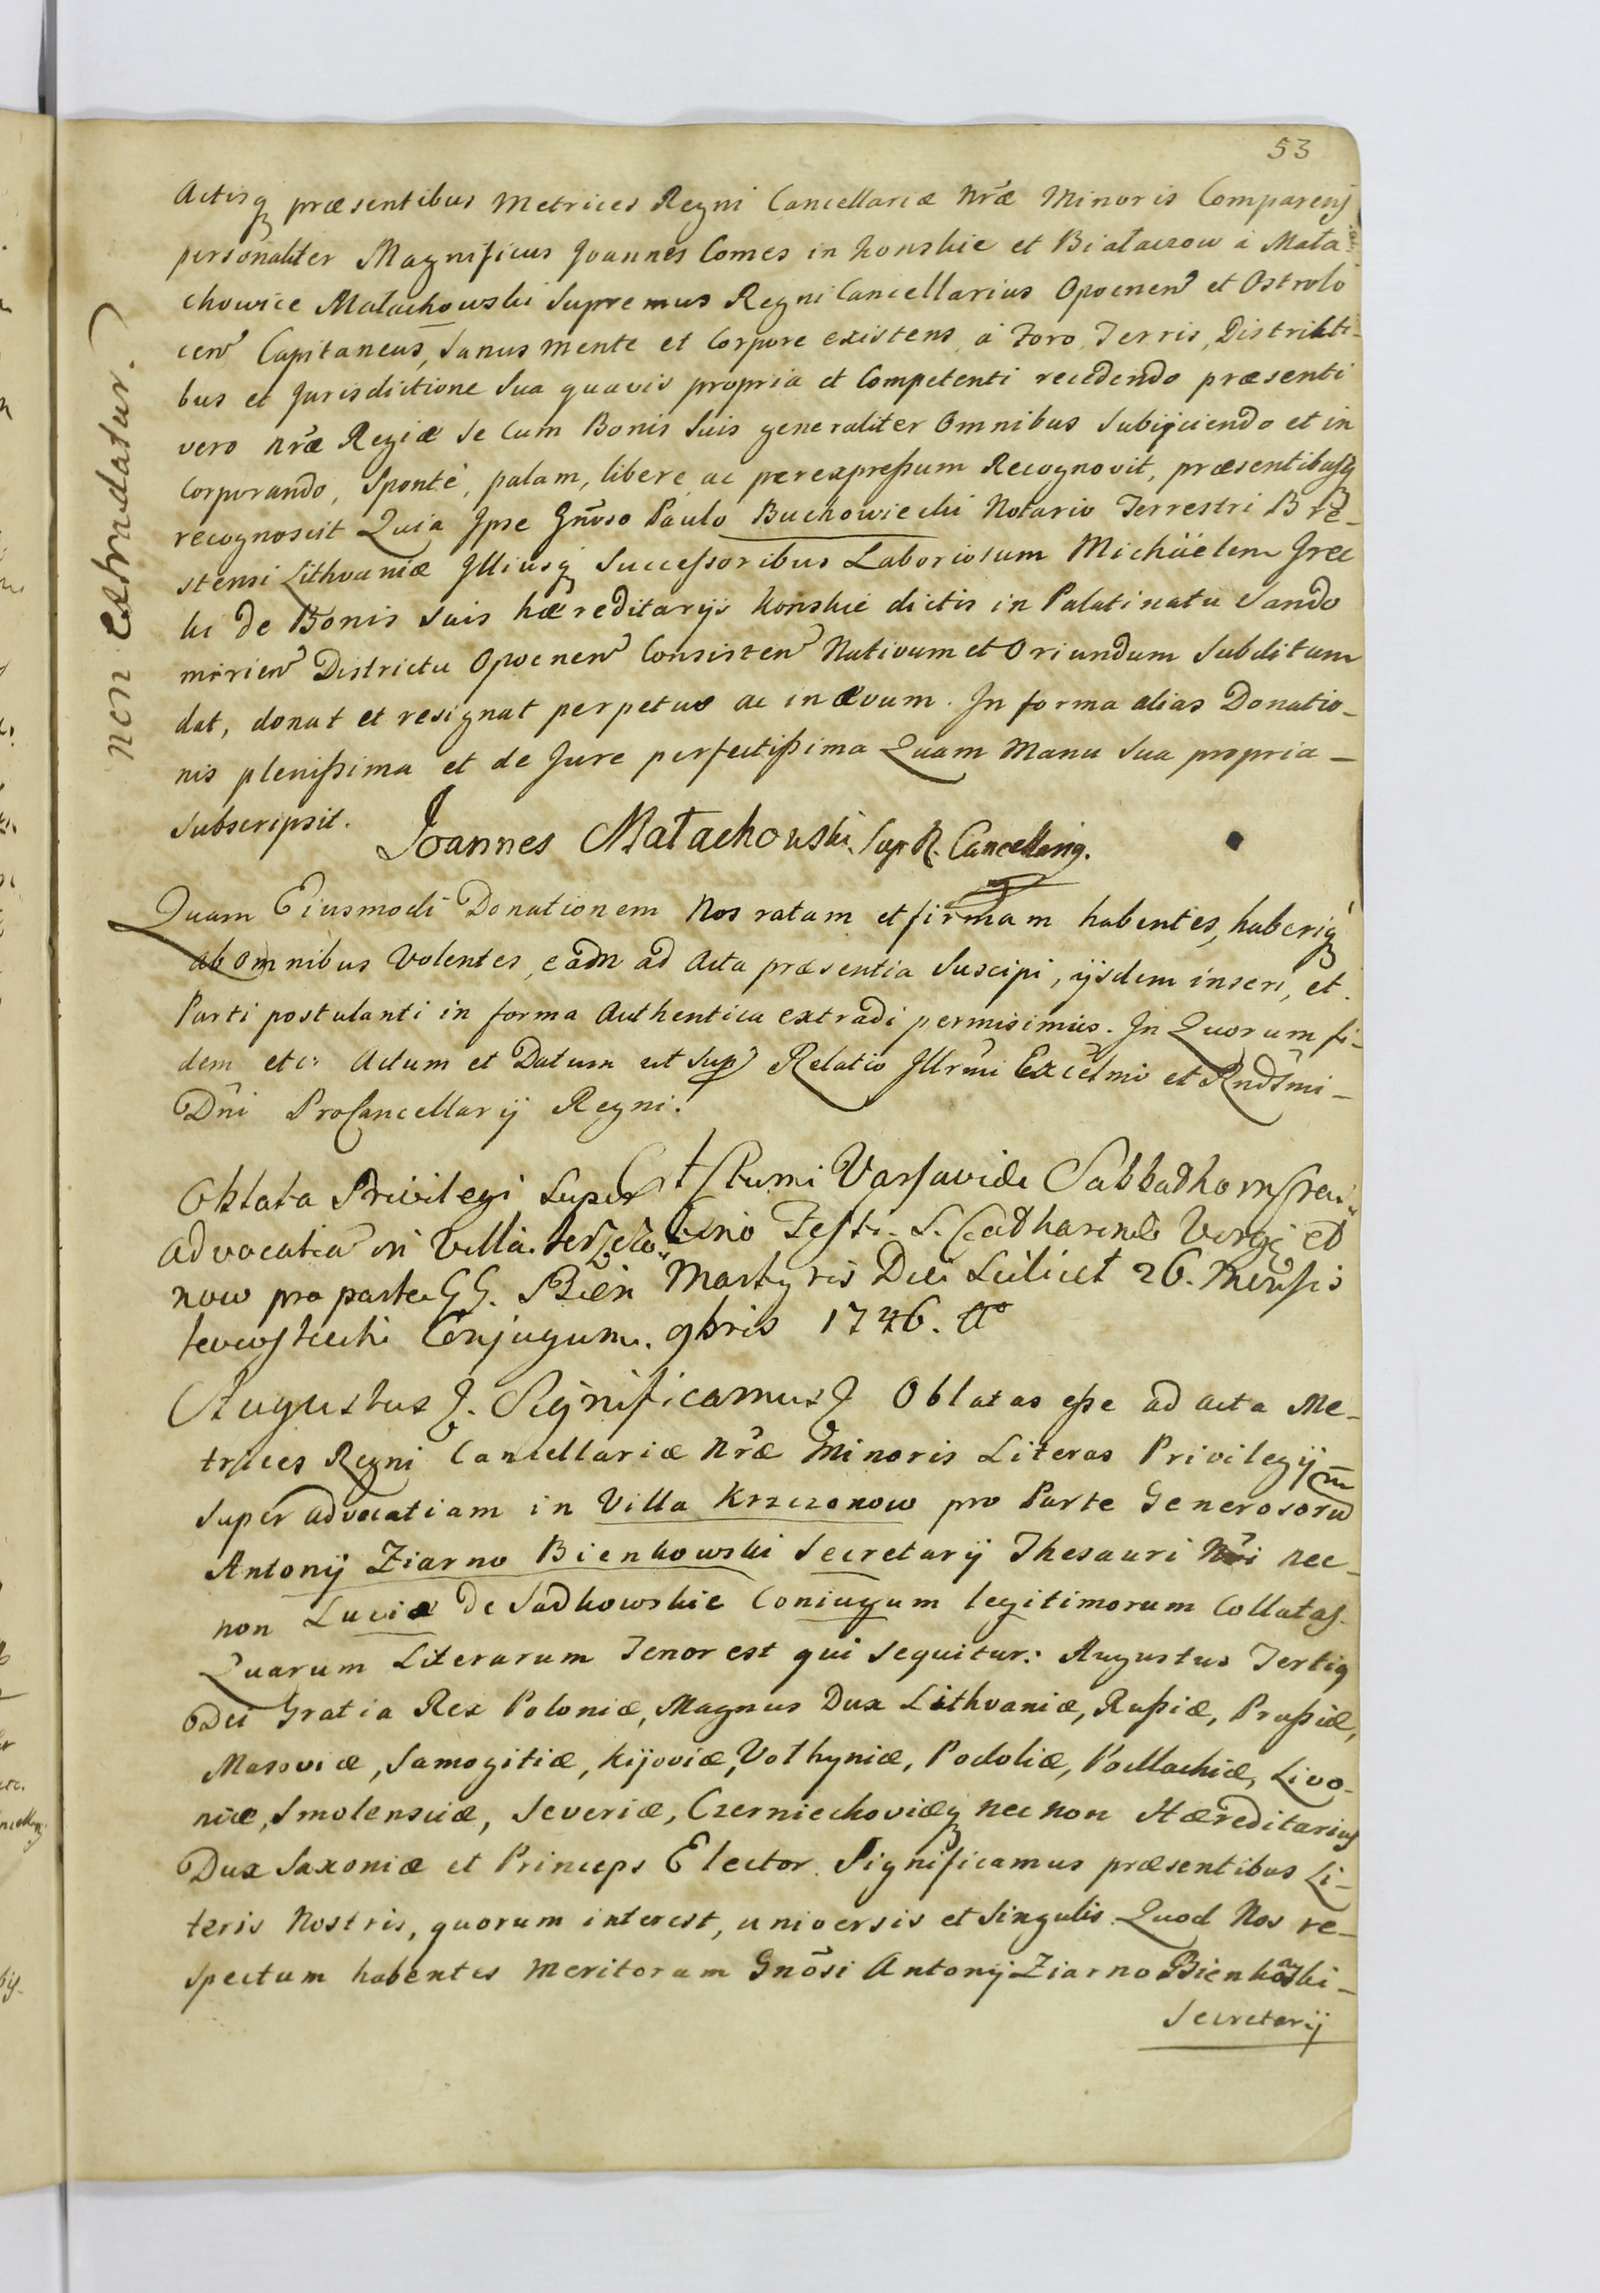 53
Actisq præsentibus Metrices Regni Cancellariæ Nræ Minoris Comparens
personaliter Magnificus Joannes Comes in Konskie et Białaczow à Mała
chowice Małachowski Supremus Regni Cancellarius Opocnen et Ostrolo
cen Capitaneus, Sanus mente et Corpore existens à Foro, Terris, Districti-
bus et Jurisdictione Sua quavis propria et Competenti recedendo præsenti
vero nræ Regiæ Se Cum Bonis Suis generaliter Omnibus Subijciendo et in
corporando, Sponte, palam, libere ac per expreßum Recognovit, præsentibusq
recognoscit Quia Jpse Gnoso Paulo Buchowiecki Notario Terrestri Bre-
stensi Lithvaniæ Jlliusq Succeßoribus Laboriosum Michäelem Grec
ki de Bonis Suis hæreditarijs Konskie dictis in Palatinatu Sando
mirien Districtu Opocnen Consisten Nativum et Oriundum Subditum
dat, donat et resignat perpetuo ac in ævum. In forma alias Donatio-
nis plenißima et de Jure perfectißima Quam Manu Sua propria -
Subscripsit. Joannes Małachowski. Sup R. Cancellariq.
non Extradatur.
Quam Eiusmodi Donationem Nos ratam et firmam habentes, haberiq
ab omnibus Volentes, eadm ad Acta præsentia Suscipi, ijsdem inseri, et
Parti postulanti in forma Authentica extradi permisimus. In Quorum fi-
dem etc: Actum et Datum ut Sup Relatio Jllrmi Excelmi et Rndsmi -
Dni ProCancellarij Regni.
Oblata Privilegi Super
advocatia in Villa Krzczo-
now pro parte GG. Bien
kowskich Conjugum.
Actum Varsaviæ Sabbatho in Cras-
tino Festi S. Catharinæ Virgi et
Martyris Die Scilicet 26. Mensis
9bris 1746. Ao
Augustus J. Significamus J Oblatas eße ad acta Me-
trices Regni Cancellariæ Nræ Minoris Literas Privilegij
Super advocatiam in Villa Krzczonow pro Parte Generosoru
Antonij Ziarno Bienkowski Secretarij Thesauri Nri nec
non Luciæ de Sadkowskie Coniugum legitimorum Collatas.
Quarum Literarum Tenor est qui Sequitur: Augustus Tertiq
Dei Gratia Rex Poloniæ, Magnus Dux Lithvaniæ, Rußiæ, Prußiæ,
Masoviæ, Samogitiæ, Kijoviæ, Volhyniæ, Podoliæ, Podlachiæ, Livo-
niæ, Smolensciæ, Severiæ, Czerniechoviæq nec non Hæreditarius
Dux Saxoniæ et Princeps Elector. Significamus præsentibus Li-
teris Nostris, quorum interest, universis et Singulis. Quod Nos re-
spectum habentes Meritorum Gnosi Antonij Ziarno Bienkowski -
Secretarij